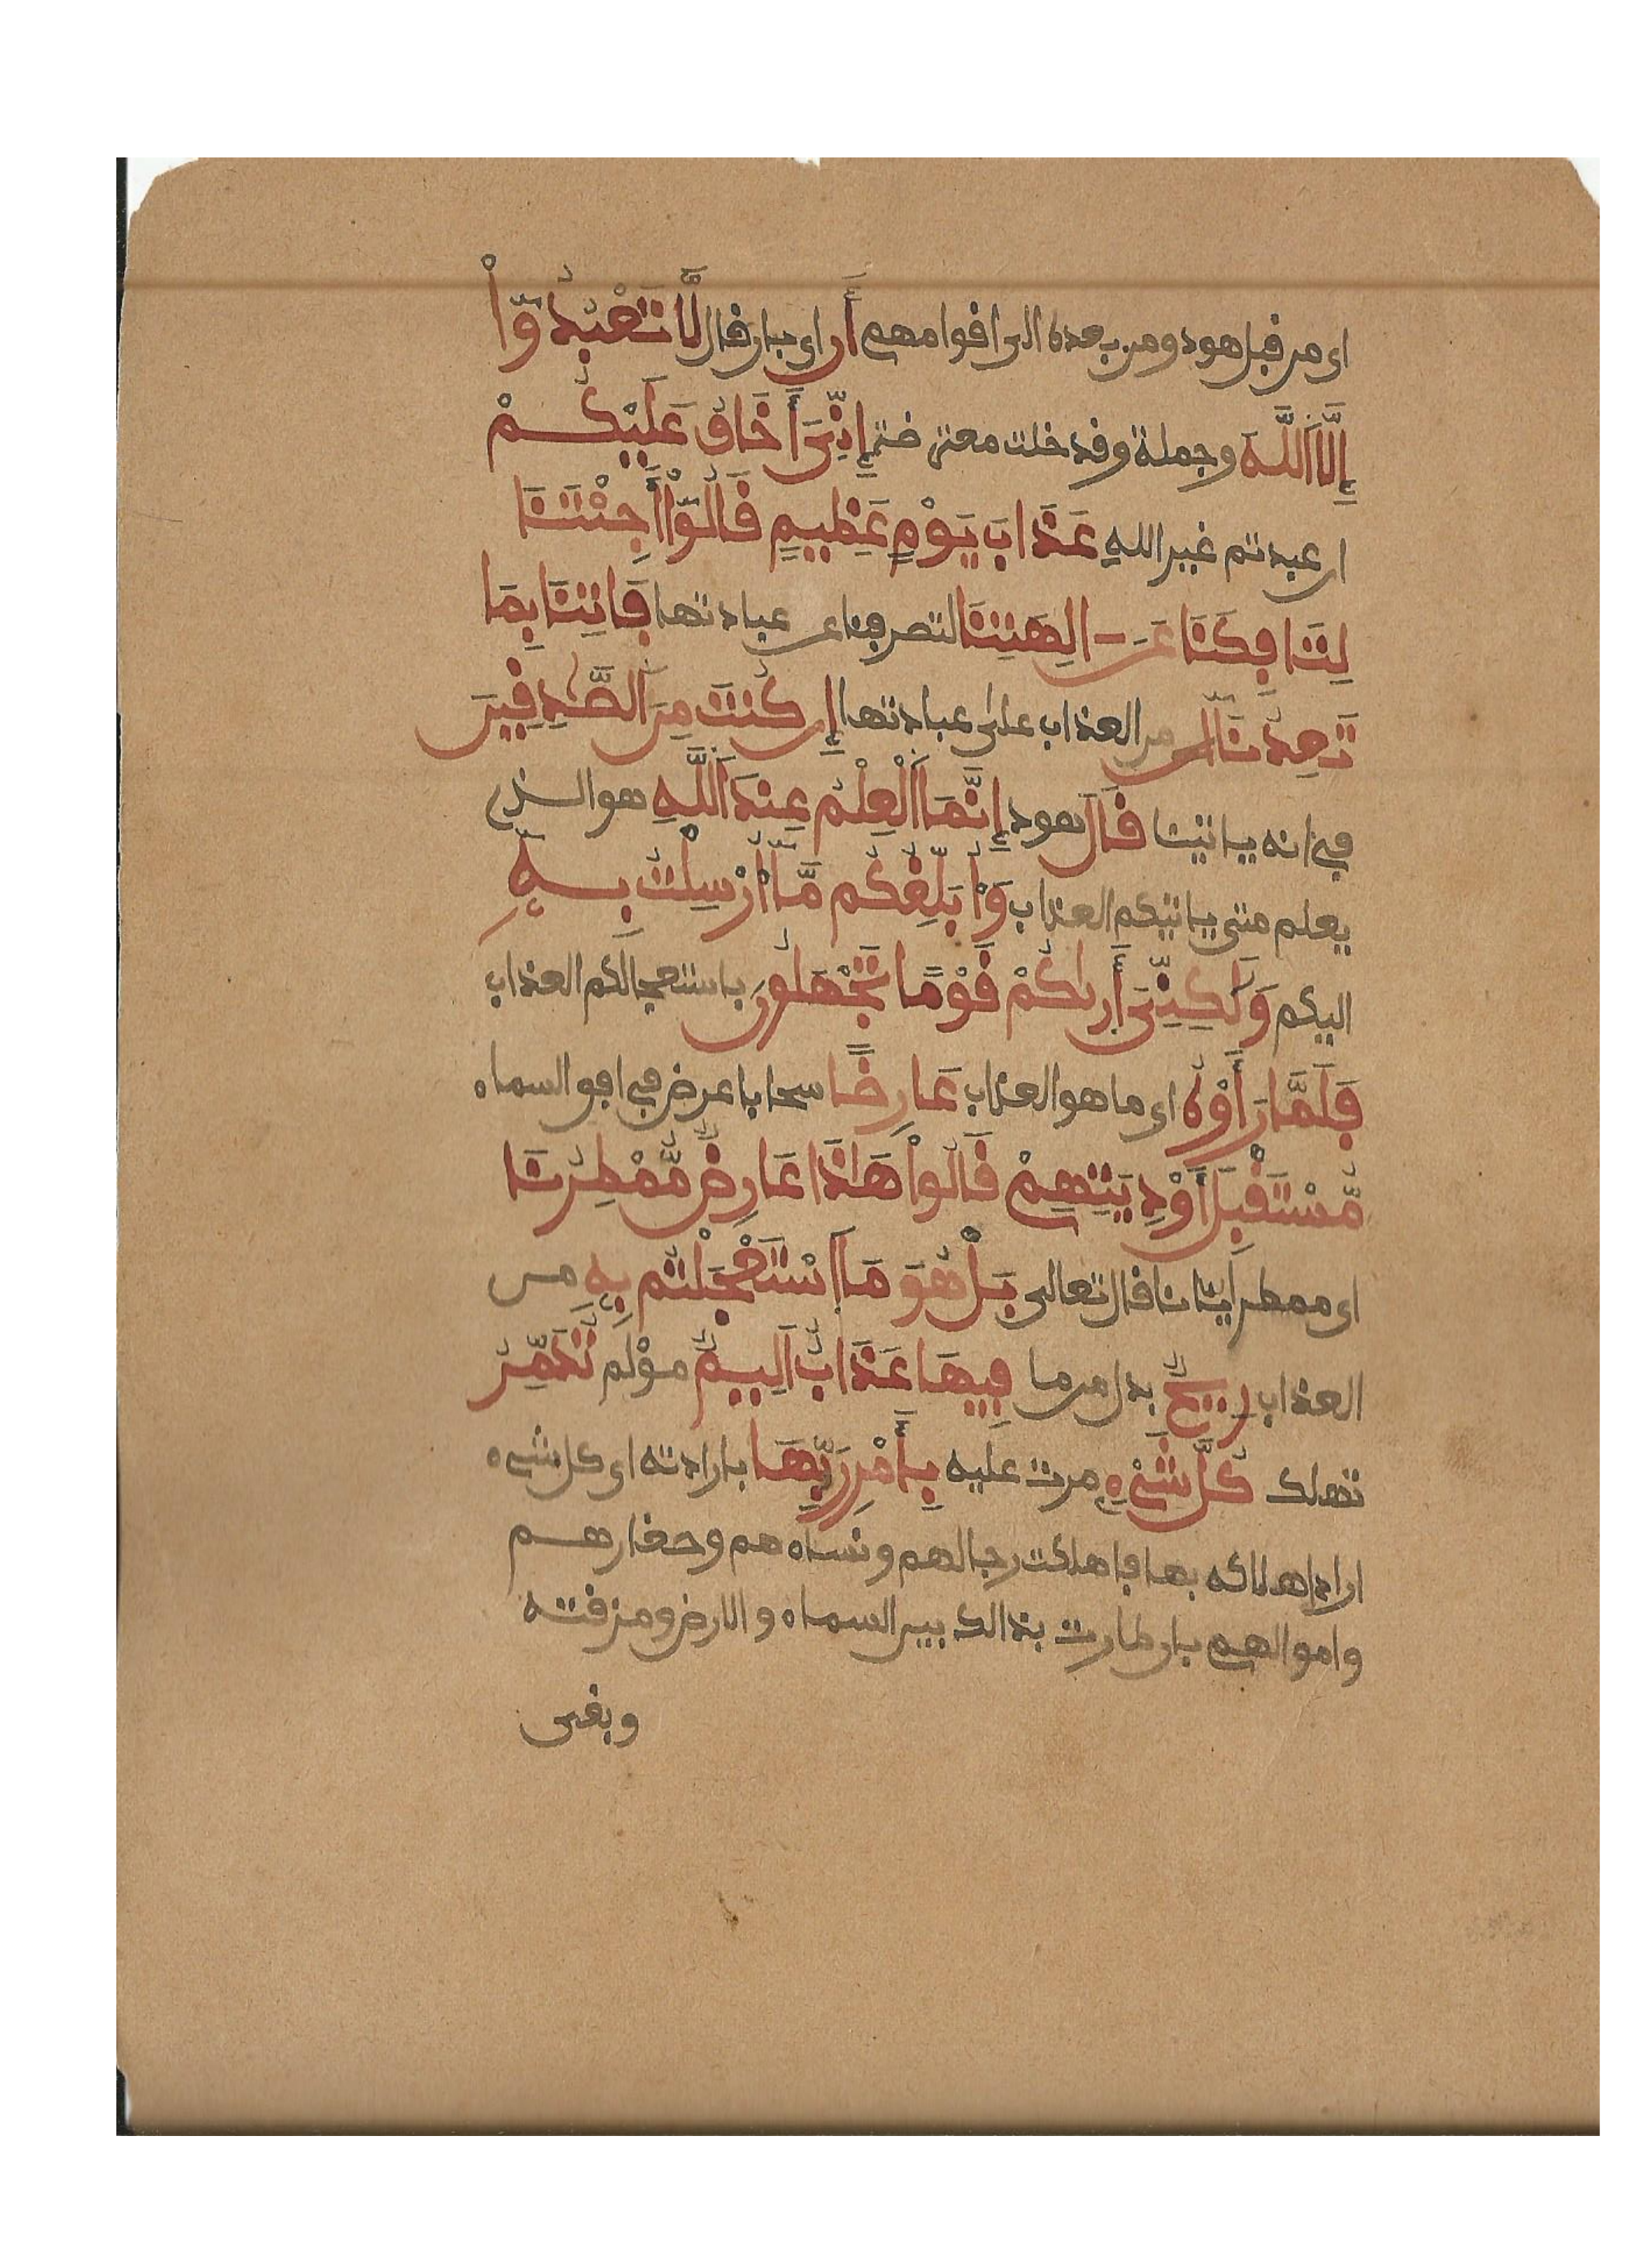 اى من قبل هود ومن بعده الى اقوامهم أن اى بان قال لَّا تَعْبُدُوٓا۟
إِلَّا اَ۬للَّهَ وجملة وقد خلت معترضة إِنِّىَ أَخَافُ عَلَيْكُمْ
ان عبدتم غير الله عَذَابَ يَوْمٍ عَظِيمٍ قَالُوٓا۟ أَجِئْتَنَا
لِتَافِكَنَا عَنَ الِهَتِنَا لتصرفنا عن عبادتها فَاتِنَا بِمَا
تَعِدُنَا من العذاب على عبادتها إِن كُنتَ مِنَ اَ۬لصَّٰدِقِينَ
في انه ياتينا قَالَ هود إِنَّمَا اَ۬لْعِلْمُ عِندَ اَ۬للَّهِ هو الذى
يعلم متى ياتيكم العذاب وَأُبَلِّغُكُم مَّآ أُرْسِلْتُ بِهِۦ
اليكم وَلَٰكِنِّىَ أَرىٰكُمْ قَوْمًا تَجْهَلُونَ باستعجالكم العذاب
فَلَمَّا رَأَوْهُ اى ما هو العذاب عَارِضًا سحابا عرض في افق السماء
مُّسْتَقْبِلَ أَوْدِيَتِهِمْ قَالُوا۟ هَٰذَا عَارِضٌ مُّمْطِرُنَا
اى ممطر ايانا قال تعالى بَلْ هُوَ مَا اَ۪سْتَعْجَلْتُم بِهِۦ من
العذاب رِيحٌ بدل من ما فِيهَا عَذَابٌ اَلِيمٌ مؤلم تُدَمِّرُ
تهلك كُلَّ شَىْءٍ مرت عليه بِأَمْرِ رَبِّهَا بارادته اى كل شىء
اراد اهلاكه بها فاهلكت رجالهم ونساءهم وصغارهم
واموالهم بان طارت بذالك بين السماء والارض ومزقته
وبقى